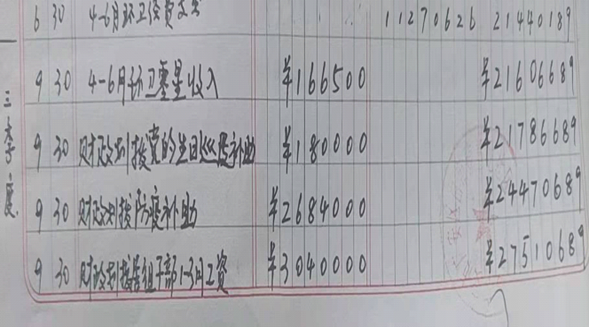 6 30 4-6月环卫经费支出 11270626 21440189
三季度
9 30 4-6月环卫零星收入 ¥166500 ¥21606689
9 30 财政划拨党的生日巡馬补助 ¥180000 ¥21786689
9 30 财政划拨防疫补助 ¥2684000 ¥24470689
9 30 财政划拨 组干部1-3月工资 ¥3040000 ¥27510689